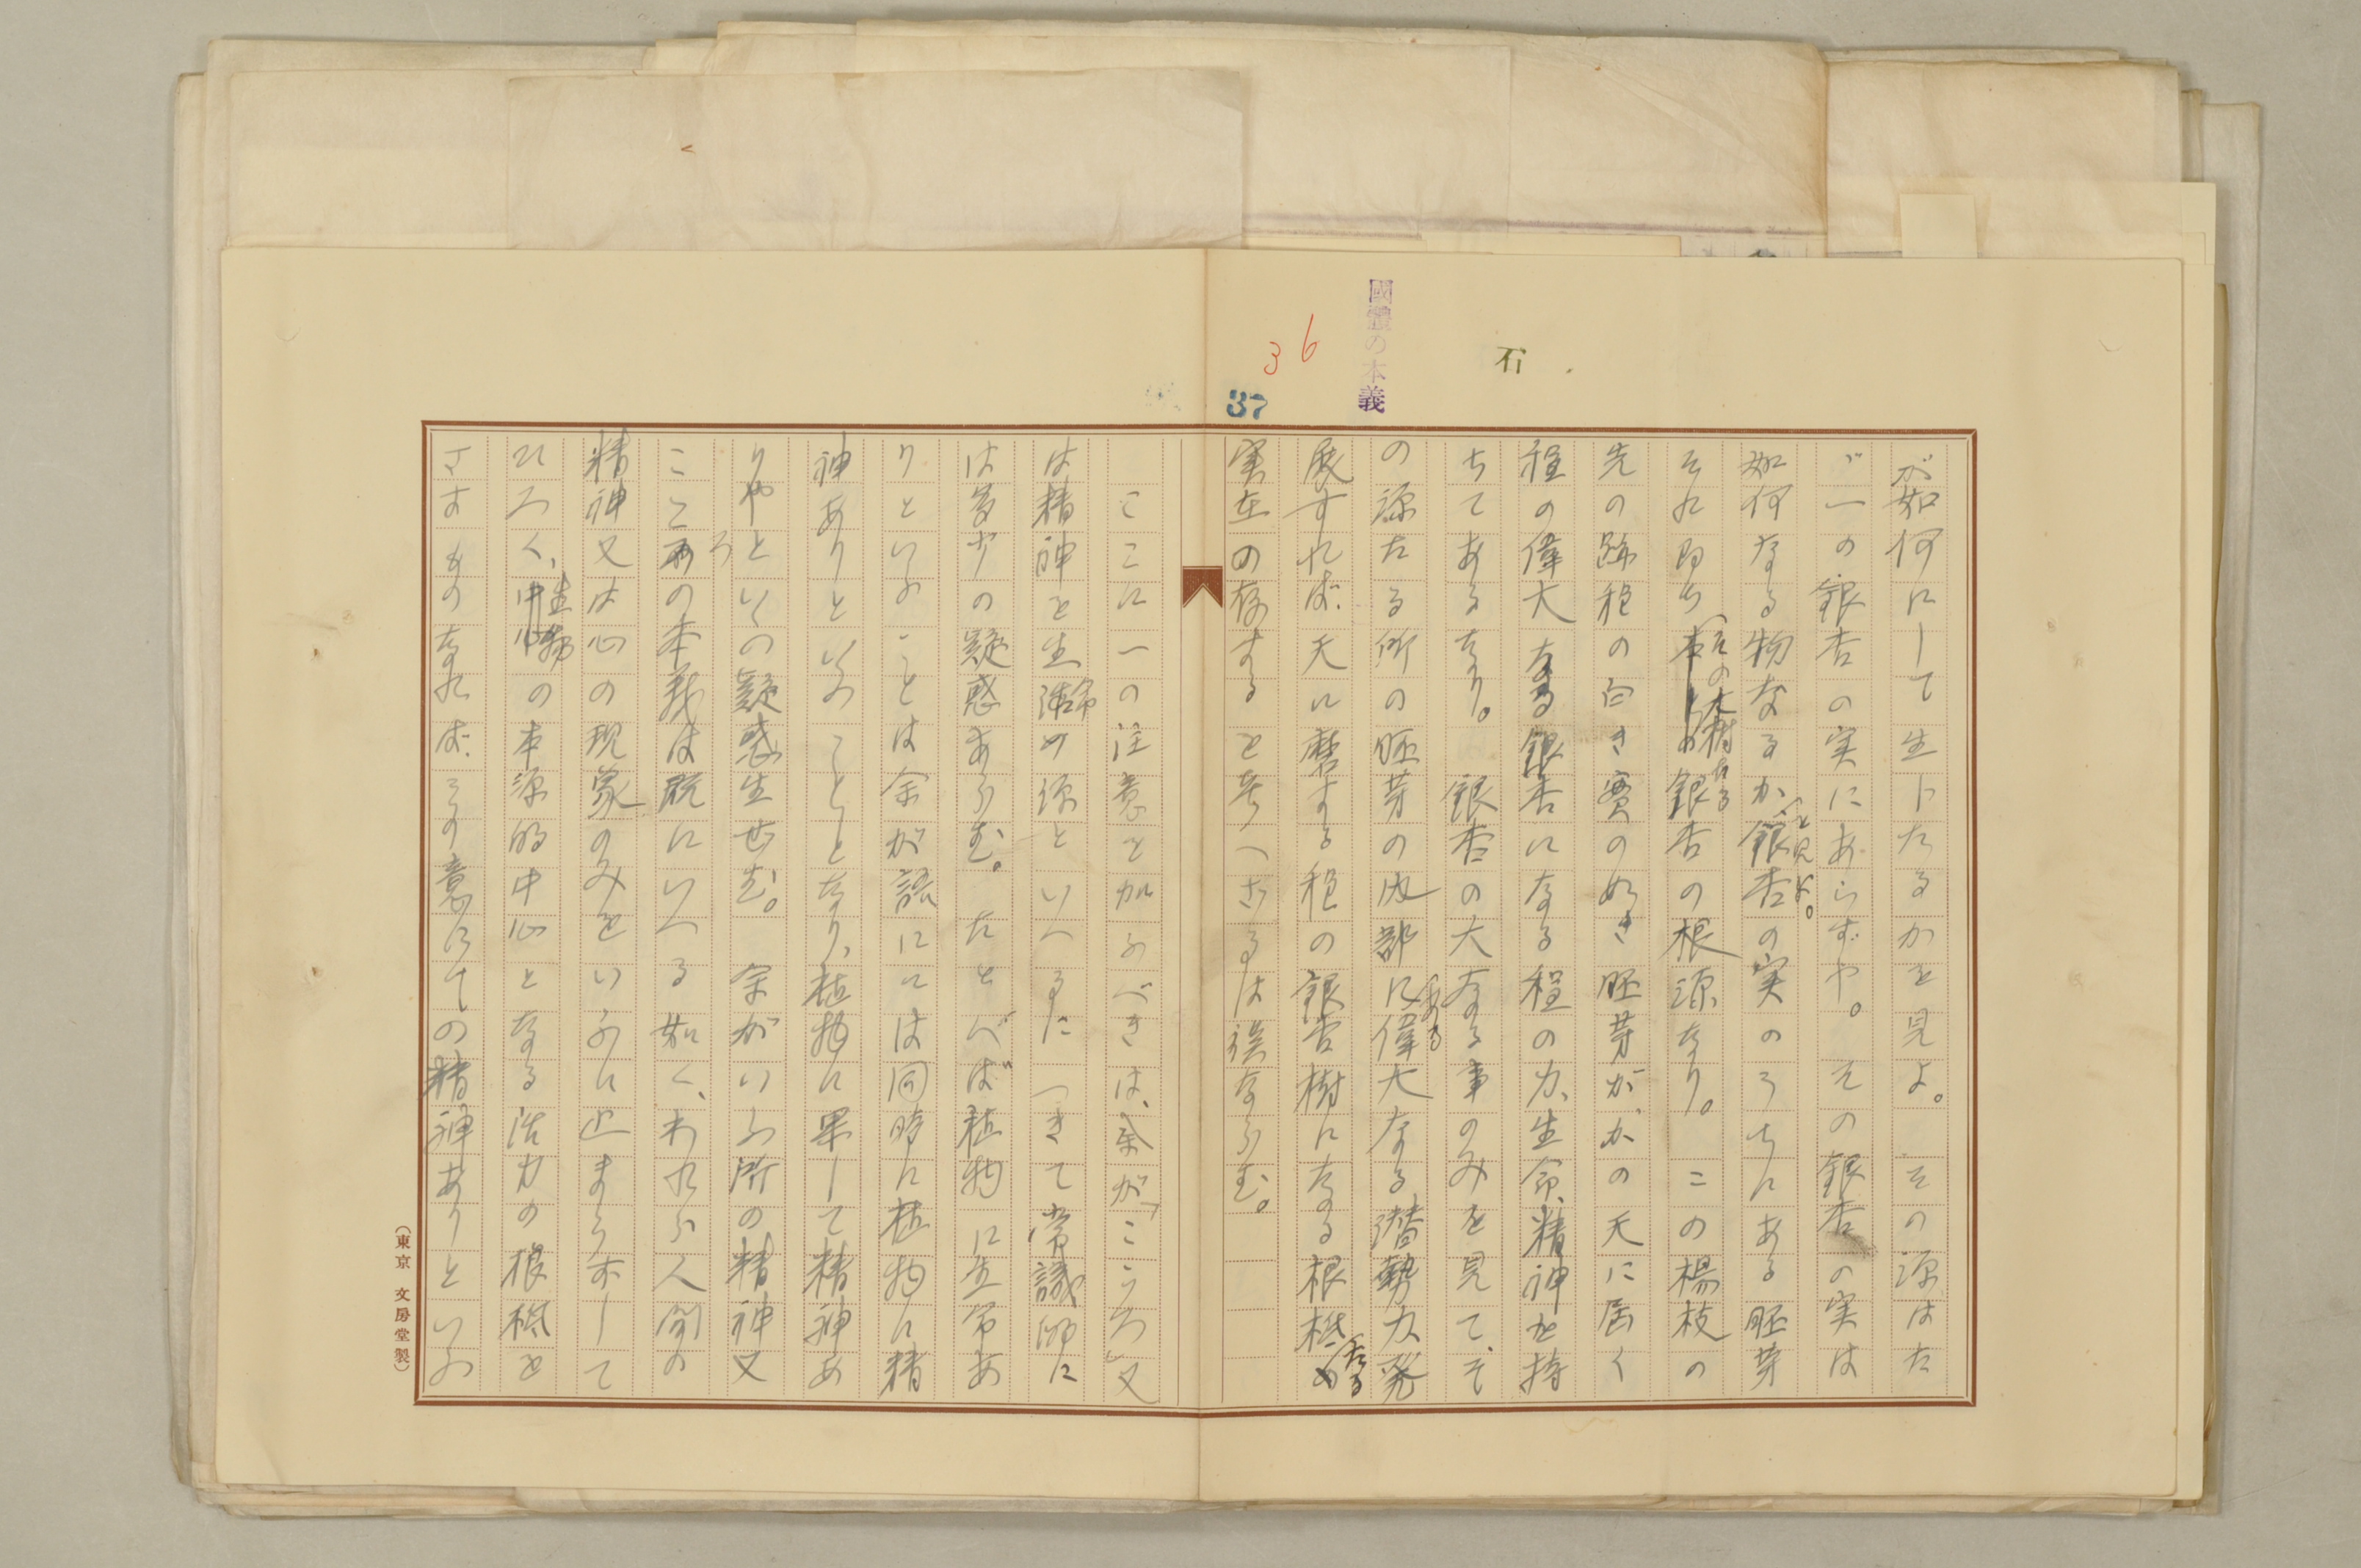 國體の本義
石
36
37
が如何にして生じたるかを見よ。その源はた
ゞ一の銀杏の実にあらずや。その銀杏の実は
如何なる物なるか(と見よ。)銀杏の実のうちにある胚芽
それ即ち(その大樹たる)銀杏の根源なり。この楊枝の
先の跡程の白き實の如き胚芽が、かの天に届く
程の偉大なる銀杏になる程の力、生命、精神を持
ちてあるなり。銀杏の大なる事のみを見て、そ
の源たる所の胚芽の内部に(ある)偉大なる潜勢力、発
展すれば天に磨する程の銀杏樹になる根柢(たる)
実在の存するを考へざるは誤ならむ。
ここに一の注意を加ふべきは、余が「こころ」又
は精神を生命の源といへるにつきて常識的に
は多少の疑惑あらむ。たとへば植物に生命あ
りといふことは余が語にては同時に植物に精
神ありといふこととなり、植物に果して精神あ
りやといふの疑惑生せむ。余がいふ所の精神又
こころの本義は既にいへる如く、われら人間の
精神又は心の現象のみをいふに止まらずして
ひろく、生物の本源的中心となる活力の根柢を
さすものなれば、この意にての精神ありといふ
(東京 文房堂製)